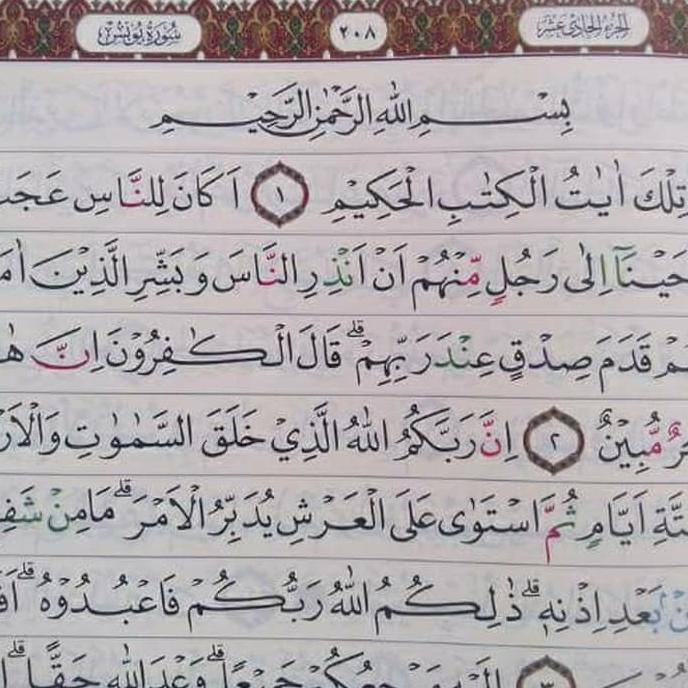 الجزء الحادي عشر ٢٠٨ سُورَةُ يُونُسَ
بِسْمِ اللّٰهِ الرَّحْمٰنِ الرَّحِيمِ
تِلْكَ اٰيٰتُ الْكِتٰبِ الْحَكِيْمِ ١ اَكَانَ لِلنَّاسِ عَجَبً
حَيْنَآ اِلٰى رَجُلٍ مِّنْهُمْ اَنْ اَنْذِرِ النَّاسَ وَبَشِّرِ الَّذِيْنَ اٰمَ
قَدَمَ صِدْقٍ عِنْدَ رَبِّهِمْ ۗ قَالَ الْكٰفِرُوْنَ اِنَّ هٰ
مُّبِيْنٌ ٢ اِنَّ رَبَّكُمُ اللّٰهُ الَّذِيْ خَلَقَ السَّمٰوٰتِ وَالْاَرْ
تَّةِ اَيَّامٍ ثُمَّ اسْتَوٰى عَلَى الْعَرْشِ يُدَبِّرُ الْاَمْرَ ۗ مَا مِنْ شَفِ
بَعْدِ اِذْنِهٖ ۗ ذٰلِكُمُ اللّٰهُ رَبُّكُمْ فَاعْبُدُوْهُ ۗ اَفَ
جَمِيْعًا ۗ وَعْدَ اللّٰهِ حَقًّا ۗ